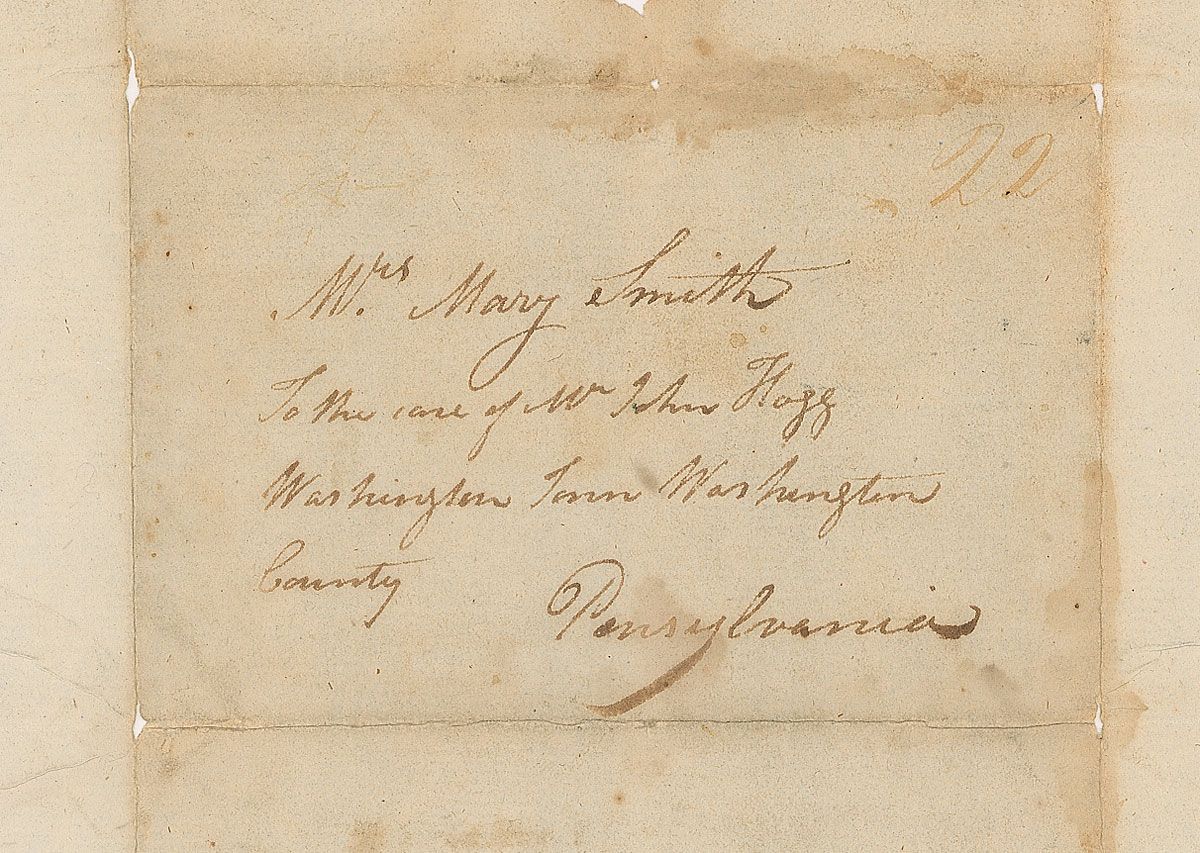 22
Mrs. Mary Smith
To the care of Mr John Hogg
Washington Town Washington
County
Pensylvania